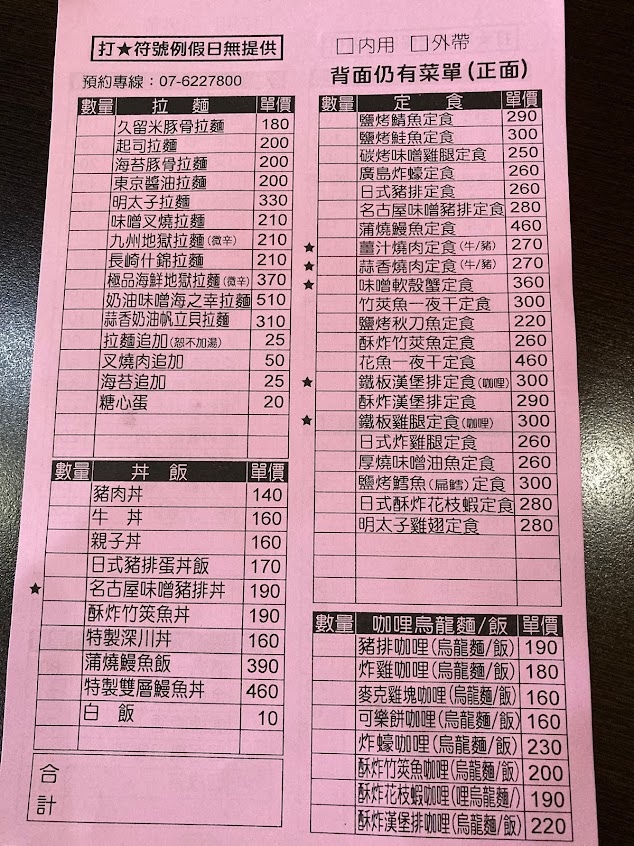 打★符號例假日無提供
預約專線：07-6227800
數量 拉麵 單價
久留米豚骨拉麵 180
起司拉麵 200
海苔豚骨拉麵 200
東京醬油拉麵 200
明太子拉麵 330
味噌叉燒拉麵 210
九州地獄拉麵(微辛) 210
長崎什錦拉麵 210
極品海鮮地獄拉麵(微辛) 370
奶油味噌海之幸拉麵 510
蒜香奶油帆立貝拉麵 310
拉麵追加(恕不加湯) 25
叉燒肉追加 50
海苔追加 25
糖心蛋 20
數量 丼飯 單價
豬肉丼 140
牛 丼 160
親子丼 160
日式豬排蛋丼飯 170
★ 名古屋味噌豬排丼 190
酥炸竹筴魚丼 190
特製深川丼 160
蒲燒鰻魚飯 390
特製雙層鰻魚丼 460
白 飯 10
合計
□內用 □外帶
背面仍有菜單(正面)
數量 定食 單價
鹽烤鯖魚定食 290
鹽烤鮭魚定食 300
碳烤味噌雞腿定食 250
廣島炸蠔定食 260
日式豬排定食 260
名古屋味噌豬排定食 280
蒲燒鰻魚定食 460
★ 薑汁燒肉定食(牛/豬) 270
★ 蒜香燒肉定食(牛/豬) 270
★ 味噌軟殼蟹定食 360
竹筴魚一夜干定食 300
鹽烤秋刀魚定食 220
酥炸竹筴魚定食 260
花魚一夜干定食 460
★ 鐵板漢堡排定食(咖哩) 300
酥炸漢堡排定食 290
★ 鐵板雞腿定食(咖哩) 300
日式炸雞腿定食 260
厚燒味噌油魚定食 260
鹽烤鱈魚(扁鱈)定食 300
日式酥炸花枝蝦定食 280
明太子雞翅定食 280
數量 咖哩烏龍麵/飯 單價
豬排咖哩(烏龍麵/飯) 190
炸雞咖哩(烏龍麵/飯) 180
麥克雞塊咖哩(烏龍麵/飯) 160
可樂餅咖哩(烏龍麵/飯) 160
炸蠔咖哩(烏龍麵/飯) 230
酥炸竹筴魚咖哩(烏龍麵/飯) 200
酥炸花枝蝦咖哩(哩烏龍麵/) 190
酥炸漢堡排咖哩(烏龍麵/飯) 220